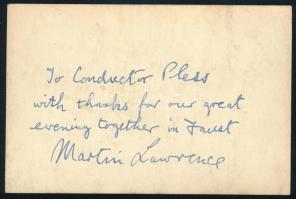 To Conductor Pless
with thanks for our great
evening together in Faust
Martin Lawrence